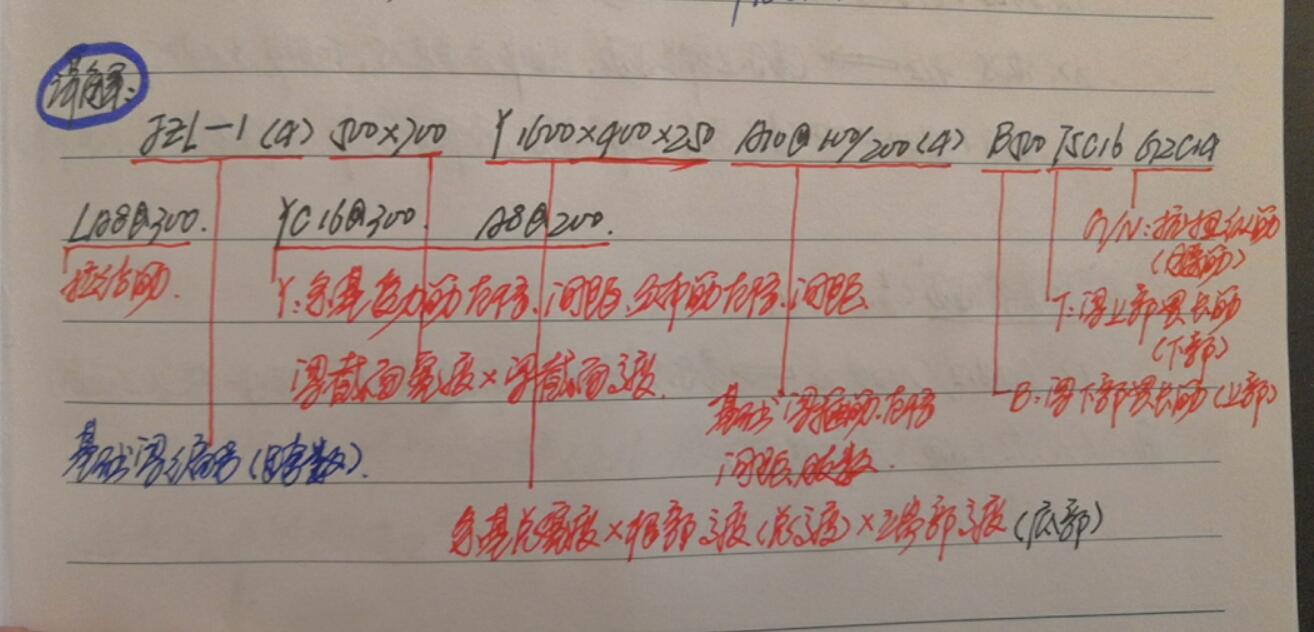 详解:
JZL-1(4) 500×700 Y1600×400×250 A10@100/200(4) B500 T5C16 G2C14
LA8@300. YC16@300 A8@200.
G/N:抗扭纵筋
(腰筋)
拉结筋.
Y:条基受力筋 间距、分布筋 间距.
T:梁上部贯长筋
(下部)
梁截面宽度×梁截面高度.
B:梁下部贯长筋(上部)
基础梁箍筋
间距、肢数.
基础梁编号(跨数).
条基总宽度×根部高度(总高度)×端部高度(底部)